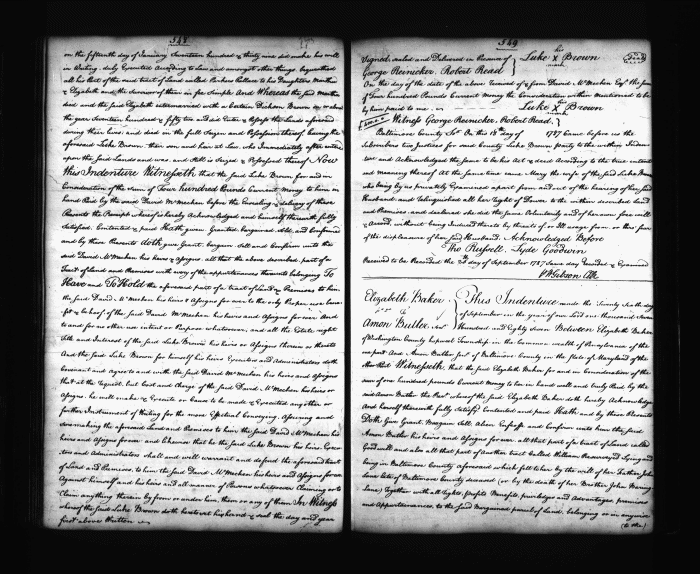 548
on the fifteenth day of January Seventeen hundred & thirty nine did make his will
in Writing duly Executed According to Law and amongst other things bequeathed
all his Part of the said tract of Land called Parkers Pallace to his Daughters Martha
& Elizabeth and the Survivor of them in fee Simple And Whereas the said Martha
died and the said Elizabeth intermarried with a Certain Dickson Brown on or about
the year Seventeen hundred & fifty two and did Enter & Possess the Lands aforesaid
during their lives and died in the full Seizen and Possession thereof leaving the
aforesaid Luke Brown their son and heir at Law who Immediately after entered
upon the said Lands and was and still is Seized & Possessed thereof Now
this Indenture Witnesseth that the said Luke Brown for and in
Consideration of the Sum of Four hundred Pounds Current Money to him in
hand Paid by the said David McMechen before the Ensealing & delivery of these
Presents the Receipt whereof is hereby Acknowledged and himself therewith fully
Satisfied Contented & paid Hath given Granted bargained Sold and Confirmed
and by these Presents doth give Grant bargain Sell and Confirm unto the
said David McMechen his heirs & Assigns all that the above described part of a
Tract of Land and Premises with way of the appurtenances thereunto belonging To
Have and To Hold the aforesaid part of a tract of Land & Premises to him
the said David McMechen his heirs and Assigns for ever to the only Proper use bene-
fit & behoof of the said David McMechen his heirs and Assigns for ever And
to and for no other use intent or Purpose whatsoever, and all the Estate right
title and Interest of the said Luke Brown his heirs or Assigns therein or thereto
And the said Luke Brown for himself his heirs Executors and Administrators doth
Covenant and Agree to and with the said David McMechen his heirs and Assigns
that at the request but Cost and Charge of the said David McMechen his heirs or
Assigns he will make & Execute or Cause to be made & Executed any other or
further Instrument of Writing for the more Effectual Conveying Assuring and
Sure making the aforesaid Land and Premises to him the said David McMechen his
heirs and Assigns for ever and likewise that he the said Luke Brown his heirs Execu-
tors and Administrators shall and will warrant and defend the aforesaid tract
of Land and Premises to him the said David McMechen his heirs and Assigns for ever
Against himself and his heirs and all manner of Persons whatsoever Claiming or to
Claim anything therein by from or under him them or any of them In Witness
whereof the said Luke Brown doth hereto set his hand & seal the day and year
first above Written
549
Signed sealed and Delivered in Presence of Luke his x mark Brown
George Reinecker, Robert Read
On the day of the date of the above Received of & from David McMechen Esqr the sum
of Four hundred Pounds Current Money the Consideration within Mentioned to be
by him paid to me Luke x mark Brown
Witness George Reinecker, Robert Read
Baltimore County Sct On this 18th day of 1787 Came before us the
Subscribers two Justices for said County Luke Brown party to the within Inden-
ture and Acknowledged the same to be his Act & deed According to the true intent
and meaning thereof At the same time came Mary the wife of the said Luke Brown
who being by us privately Examined apart from and out of the hearing of her said
Husband and relinquished all her right of Dower to the within described land
and Premises and declared she did the same Voluntarily and of her own free will
& Accord, without being Induced thereto by threats of or Ill usage from or thro' fear
of the displeasure of her said Husband. Acknowledged Before
Tho Russell. Lyde Goodwin
Received to be Recorded the 2d day of September 1787 Same day Recorded & Examined
P Wm Gibson Clk
Elizabeth Baker
Amon Butler
This Indenture made the Twenty Sixth day
of September in the year of our Lord one thousand Seven
Hundred and Eighty Seven Between Elizabeth Baker
of Washington County Township in the Common wealth of Pensylvania of the
one part And Amon Butler of Baltimore County in the State of Maryland of the
other Part Witnesseth that the said Elizabeth Baker for and in Consideration of the
sum of one hundred pounds Current Money to her in hand well and truly Paid by the
said Amon Butler the Receipt whereof the said Elizabeth Baker doth hereby Acknowledge
And herself therewith fully Satisfied Contented and paid Hath and by these Presents
Doth Give Grant Bargain Sell Alien Enfeoff and Confirm unto him the said
Amon Butler his heirs and Assigns for ever all that part of a tract of Land called
Goodwill and also all that part of Another tract called William Resurveyed Lying and
being in Baltimore County aforesaid which fell to her by the will of her Father John
Lane late of Baltimore County deceased (or by the death of her Brother John
Lane) Together with all rights Profits Benefits priviledges and Advantages premises
and Appurtenances to the said bargained parcel of Land belonging or in anywise